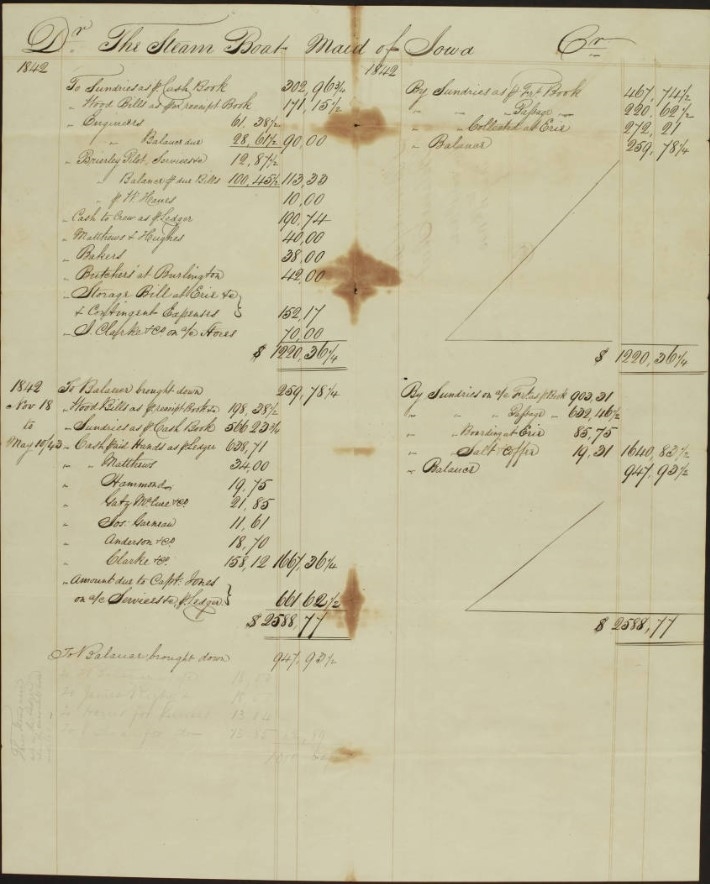 Dr. The Steam Boat Maid of Iowa Cr
1842
To Sundries as pr Cash Book 302,96¾
" Wood Bills as pr receipt Book 171,15½
" Engineers 61,38½
" Balance due 28,61½ 90,00
" Brierley Pilot, Services &c 12,87½
" Balance pr due Bills 100,45½ 113,33
" pr W. Hanes 10,00
" Cash to Crew as pr Ledger 190,74
" Matthews & Hughes 40,00
" Bakers 38,00
" Butchers at Burlington 42,00
" Storage Bill at Erie &c
& Contingent Expenses 152,17
" J. Clarke & Co on a/c Stores 70,00
$ 1220,36¼
1842
By Sundries as pr Frt Book 467,74½
" " Passage " 220,62½
" " Collected at Erie 272,21
" Balance 259,78¼
$ 1220,36¼
1842 To Balance brought down 259,78¼
Nov 18 " Wood Bills as pr receipt Book &c 198,38½
to " Sundries as pr Cash Book 566,23¾
May 10/43 " Cash paid Hands as pr Ledger 638,71
" " Matthews 34,00
" Hammond 19,75
" Gatz McClure & Co 21,85
" Jos. Garneau 11,61
" Anderson & Co 18,70
" Clarke & Co 158,12 1667,36¼
" Amount due to Capt. Jones
on a/c Services &c pr Ledger 661,62½
$ 2588,77
By Sundries on a/c Frt as pr Book 903,31
" " " Passage " 632,46½
" " Boarding at Erie 85,75
" " Salt & Coffee 19,31 1640,83½
" Balance 947,93½
$ 2588,77
To Balance brought down 947,93½